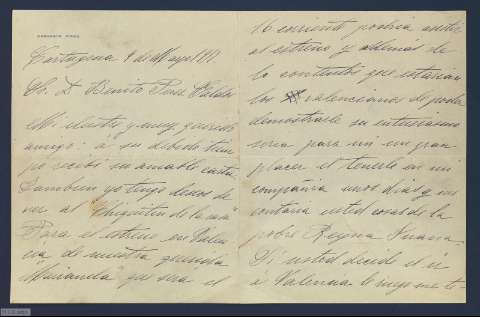 Cartagena 9 de Mayo
Sr. D Benito Perez Galdós
Mi ilustre y muy querido
amigo: a su debido tiem
po recibi su amable carta.
Tambien yo tengo deseos de
ver al "Chiquitin de la casa"
Para el estreno en Valen
cia de nuestra querida
"Marianela" que sera el
16 corriente podria asistir
al estreno y ademas de
lo contentos que estarian
los valencianos de poder
demostrarle su entusiasmo
seria para mi un gran
placer el tenerle en mi
compañia unos dias y me
contaria usted cosas de la
pobre Reyna Juana.
Si usted decide el ir
á Valencia le ruego me te-